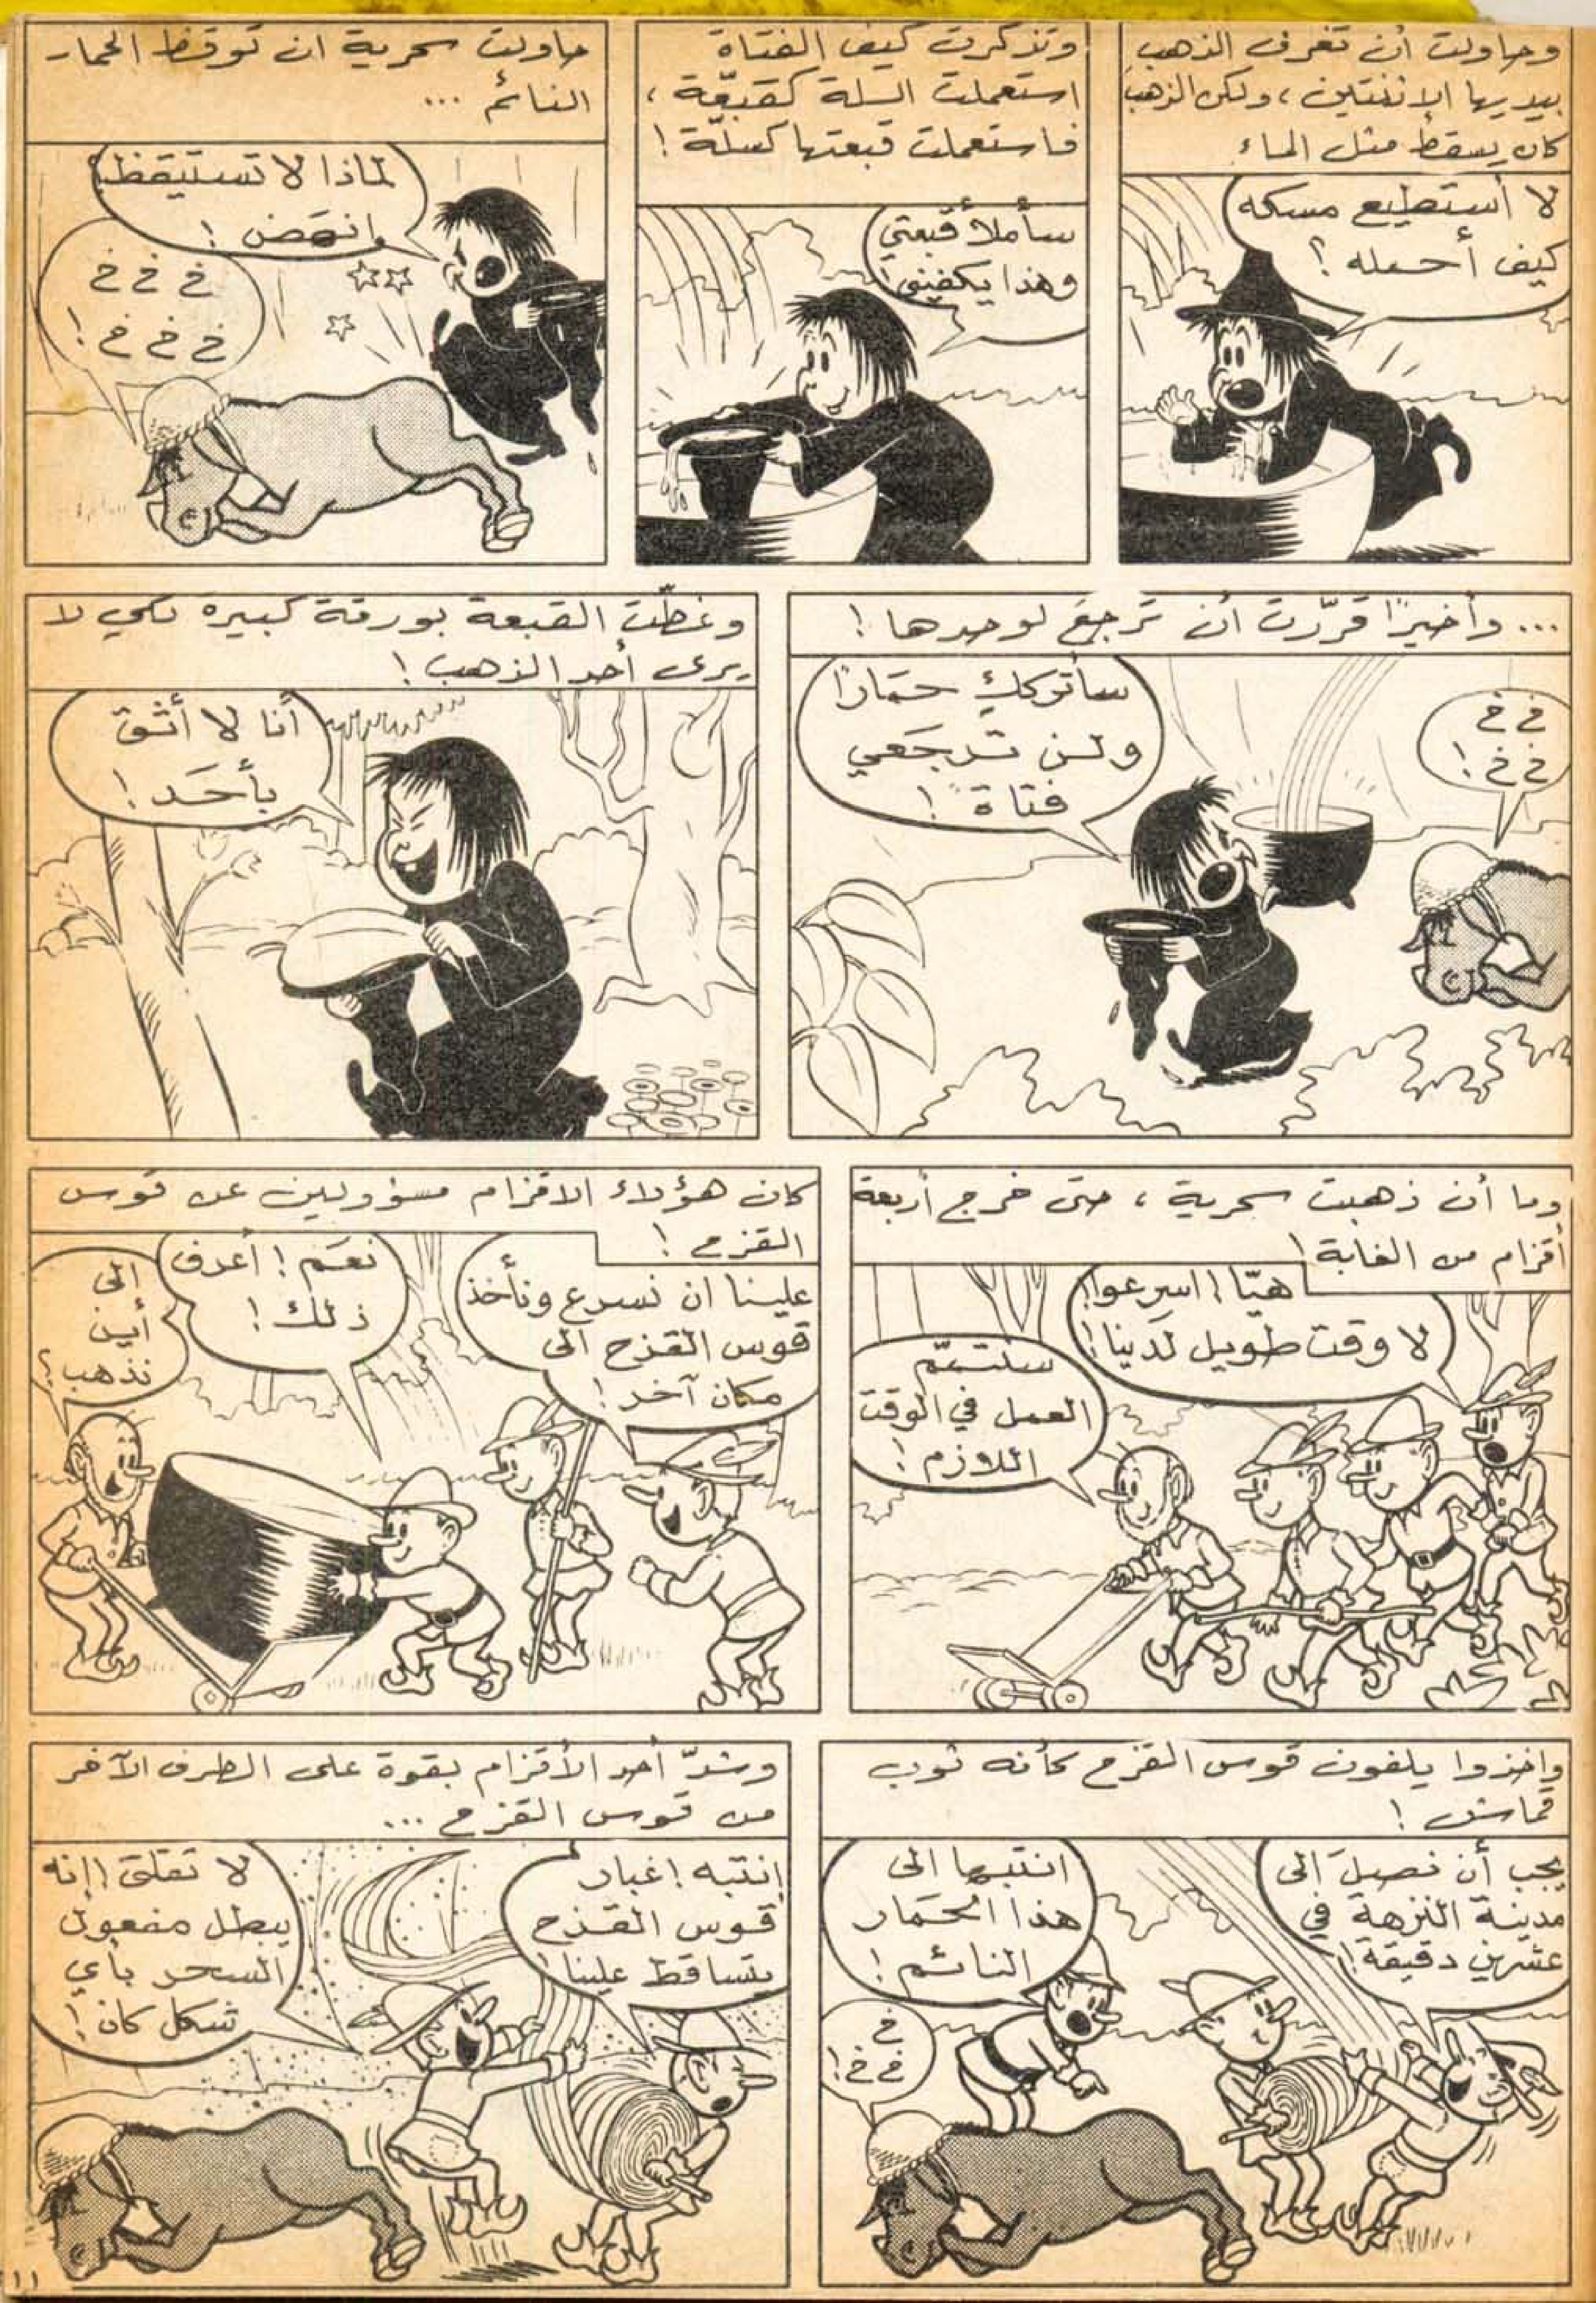 وحاولت أن تغرف الذهب
بيديها الاثنتين ، ولكن الذهب
كان يسقط مثل الماء
لا أستطيع مسكه
كيف أحمله ؟
وتذكرت كيف الفتاة
استعملت السلة كقبّعة ،
فاستعملت قبعتها كسلّة !
سأملأ قبّعتي
وهذا يكفيني !
حاولت سحرية ان توقظ الحمار
النائم ...
لماذا لا تستيقظ ؟
انهض !
خ خ خ
خ خ خ !
... وأخيرًا قرّرت أن ترجع لوحدها !
خ خ
خ خ !
سأتركك حمارًا
ولن ترجعي
فتاة !
وغطّت القبعة بورقة كبيرة لكي لا
يرى أحد الذهب !
أنا لا أثق
بأحَد !
وما أن ذهبت سحرية ، حتى خرج أربعة
أقزام من الغابة !
هيّا ! اسرعوا !
لا وقت طويل لدينا !
سنتمّم
العمل في الوقت
اللازم !
كان هؤلاء الاقزام مسؤولين عن قوس
القزح !
علينا ان نسرع ونأخذ
قوس القزح الى
مكان آخر !
نعَم ! أعرف
ذلك !
الى
أين
نذهب ؟
واخذوا يلفون قوس القزح كأنه ثوب
قماش !
يجب أن نصلَ الى
مدينة النزهة في
عشرين دقيقة !
انتبها الى
هذا الحمار
النائم !
خ
خ خ !
وشدّ أحد الأقزام بقوة على الطرف الآخر
من قوس القزح ...
إنتبه ! غبار
قوس القزح
يتساقط علينا !
لا تقلق ! إنه
يبطل مفعول
السحر بأي
شكل كان !
١١